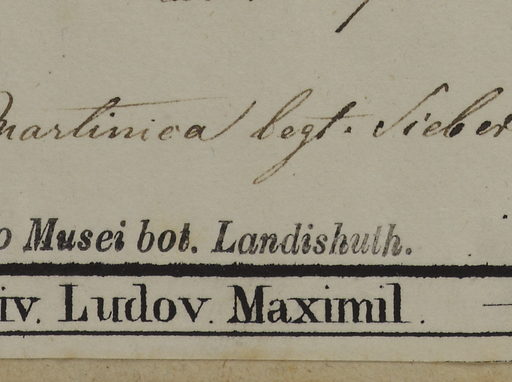 Martinica legt. Sieber
o Musei bot. Landishuth.
iv. Ludov. Maximil.